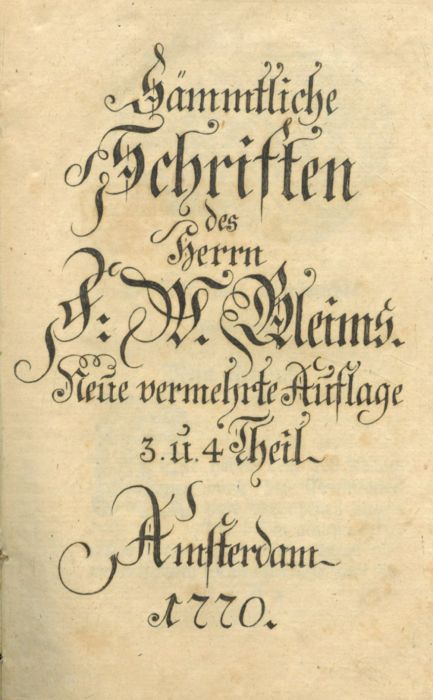 Sämmtliche
Schriften
des
Herrn
F: W. Gleims.
Neue vermehrte Auflage
3. u. 4 Theil
Amsterdam
1770.